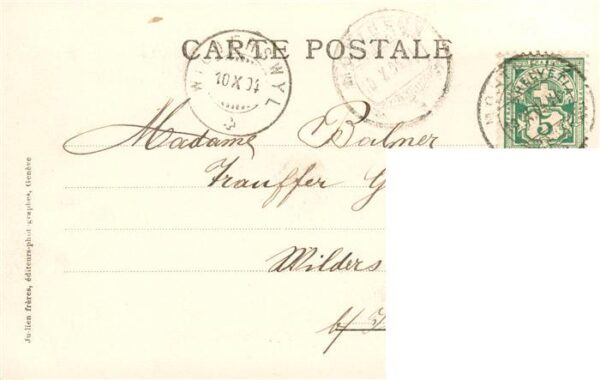 CARTE POSTALE
WILDERSWYL
10 X 04
HELVETIA
5
Madame Balmer
Trauffer G
Wilders
b/ I
Julien frères, éditeurs-phot graphes, Genève